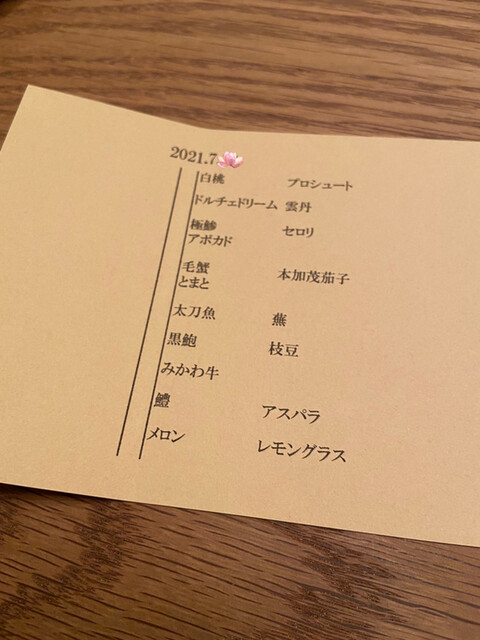 2021.7
白桃 プロシュート
ドルチェドリーム 雲丹
極鯵 セロリ
アボカド
毛蟹 本加茂茄子
とまと
太刀魚 蕪
黒鮑 枝豆
みかわ牛
鱧 アスパラ
メロン レモングラス